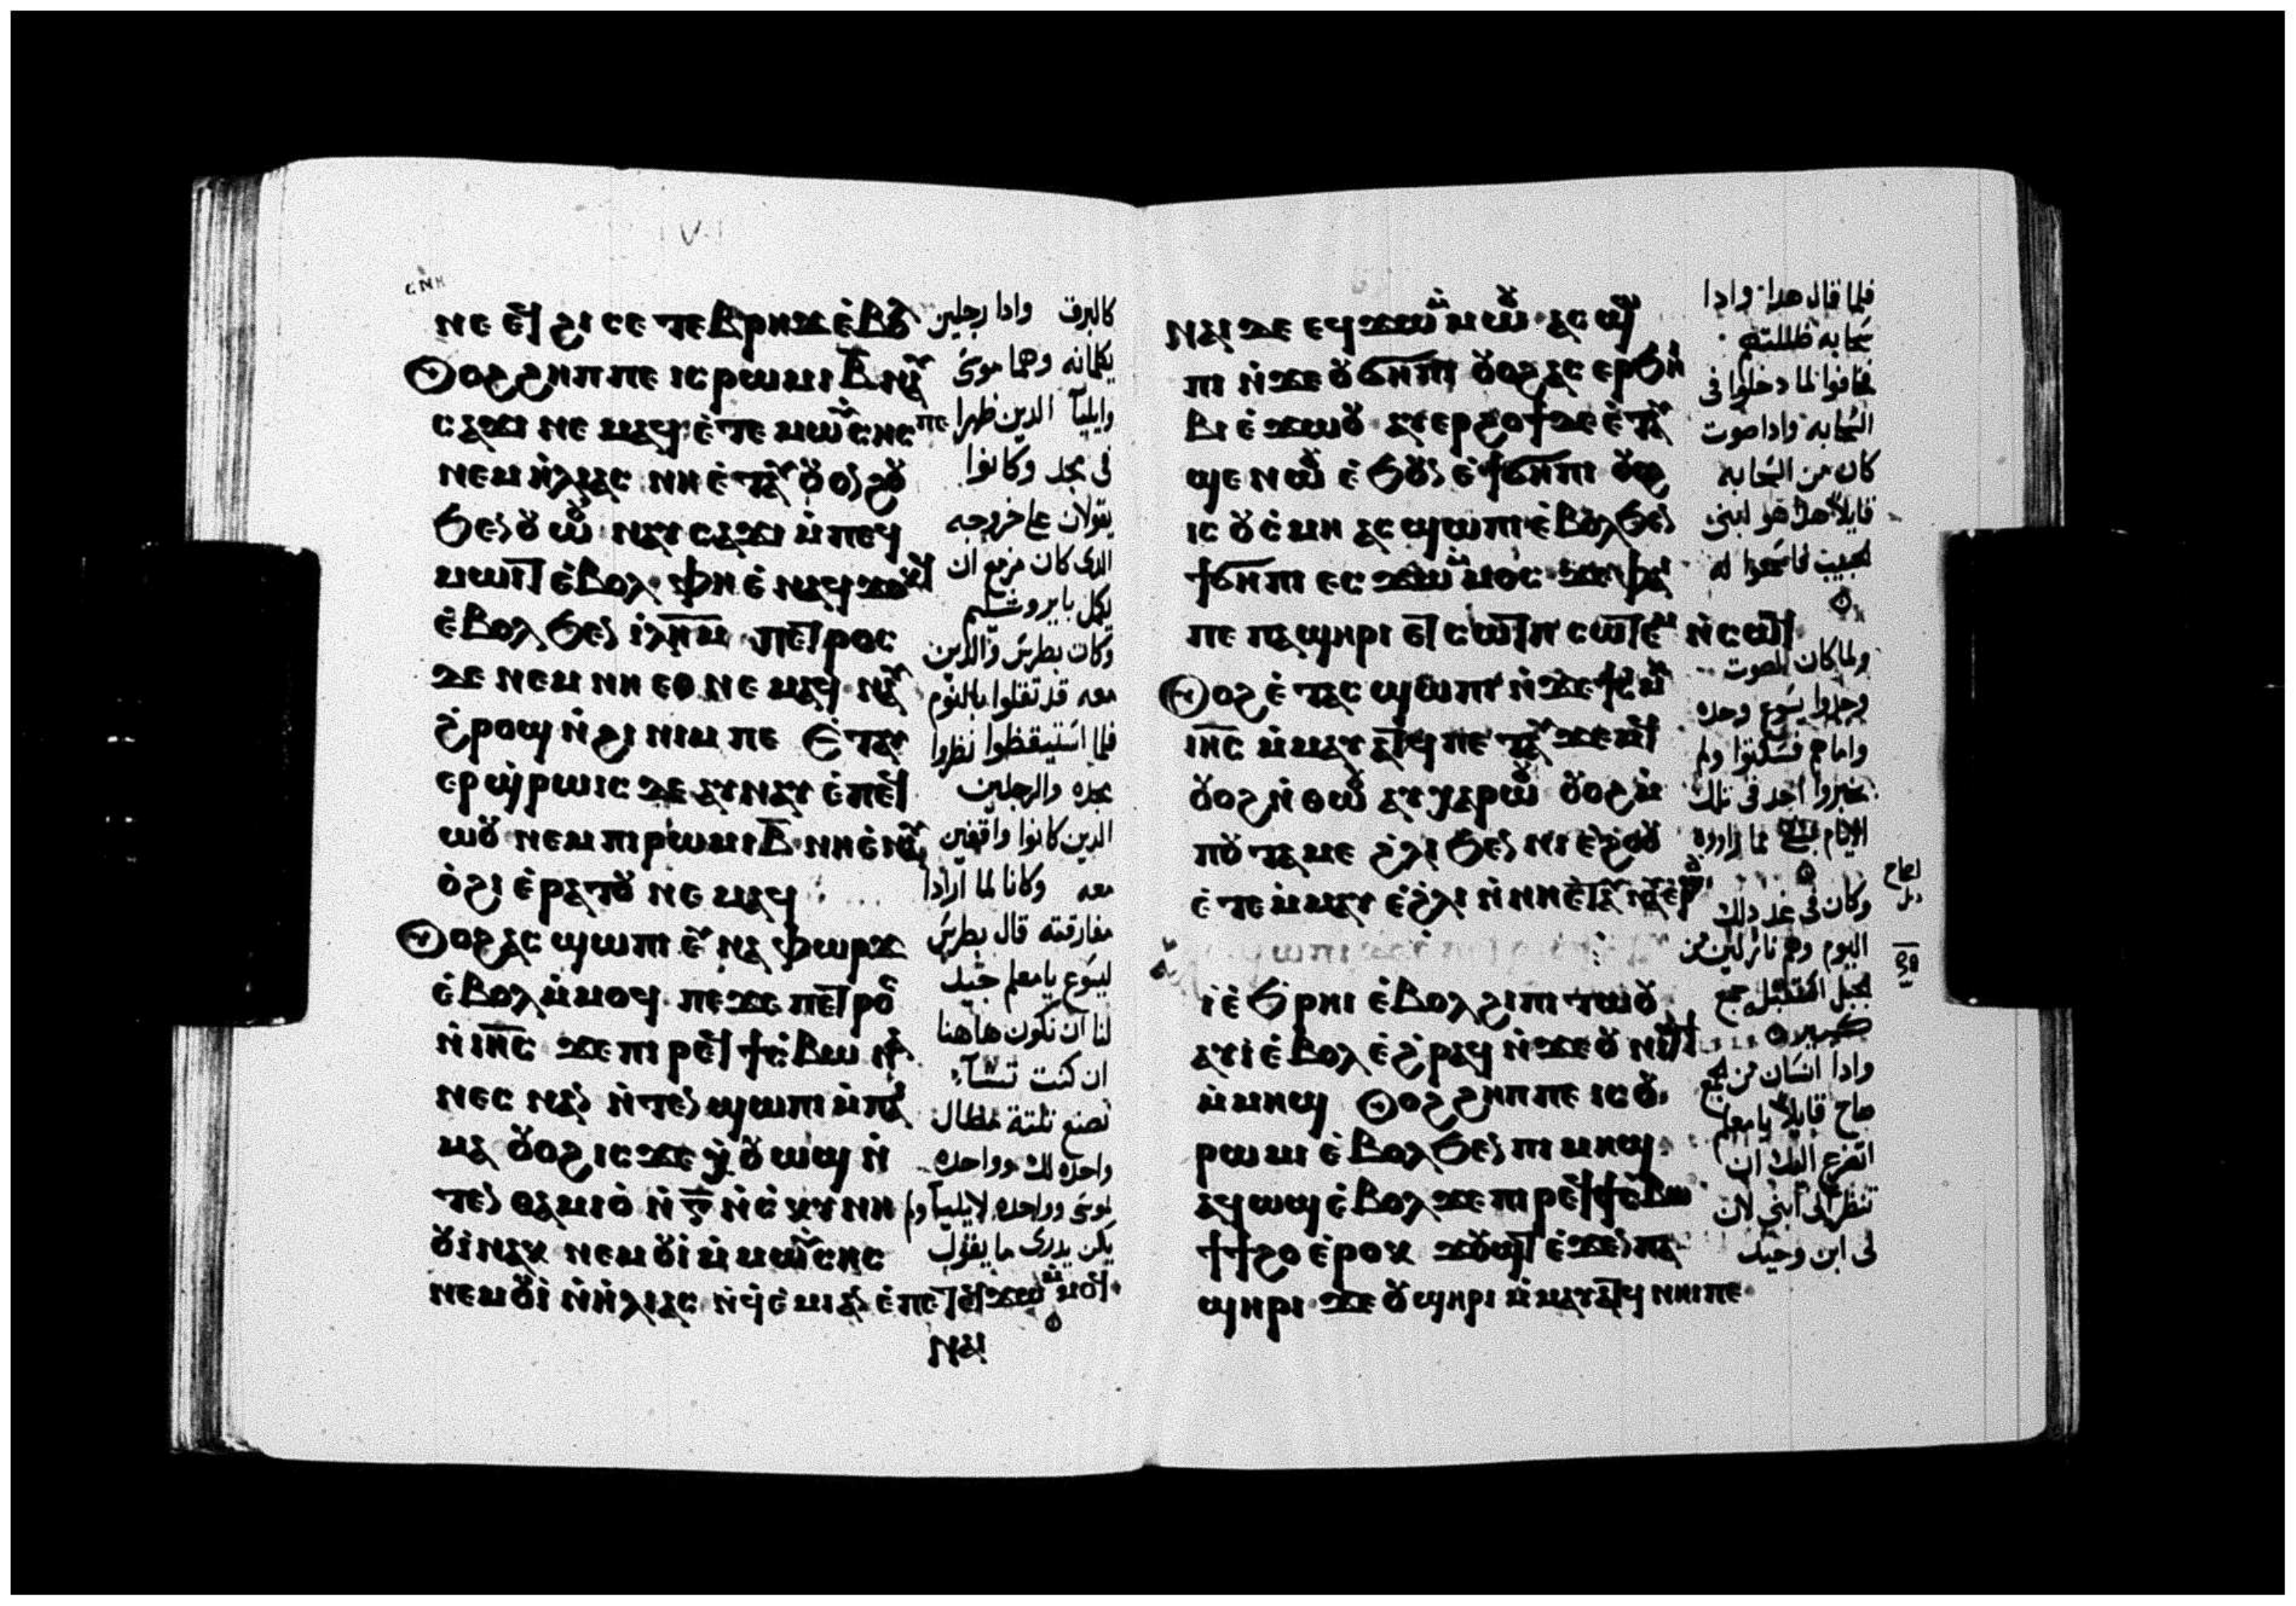 ⲛⲉ ⲉϥϩⲓ ⲥⲉⲧⲉⲃⲣⲏϫ ⲉ̀ⲃⲟⲗ
ⲟⲩⲟϩ ϩⲏⲡⲡⲉ ⲓⲥ ⲣⲱⲙⲓ ⲃ̅ ⲛⲁⲩ
ⲥⲁϫⲓ ⲛⲉⲙⲁϥ ⲉ̀ⲧⲉ ⲙⲱⲩⲥⲏⲥ ⲡⲉ
ⲛⲉⲙ ⲏ̀ⲗⲓⲁⲥ ⲛⲏ ⲉ̀ⲧⲁⲩⲟⲩⲟⲛϩⲟⲩ
ϧⲉⲛ ⲟⲩⲱ̀ⲟⲩ ⲛⲁⲩⲥⲁϫⲓ ⲙ̀ⲡⲉϥ
ⲙⲱⲓⲧ ⲉ̀ⲃⲟⲗ ⲫⲏ ⲉ̀ⲛⲁϥϫⲟⲕϥ
ⲉ̀ⲃⲟⲗ ϧⲉⲛ ⲓ̀ⲗ̅ⲏ̅ⲙ̅ ⲡⲉⲧⲣⲟⲥ
ⲇⲉ ⲛⲉⲙ ⲛⲏ ⲉⲑⲛⲉⲙⲁϥ ⲛⲁⲩ
ϩ̀ⲣⲟϣ ⲛ̀ϩⲓⲛⲓⲙ ⲡⲉ ⲉ̀ⲧⲁⲩ
ⲉⲣϣ̀ⲣⲱⲓⲥ ⲇⲉ ⲁⲩⲛⲁⲩ ⲉ̀ⲡⲉϥ
ⲱⲟⲩ ⲛⲉⲙ ⲡⲓⲣⲱⲙⲓ ⲃ̅ ⲛⲏ ⲉ̀ⲛⲁⲩ
ⲟ̀ϩⲓ ⲉ̀ⲣⲁⲧⲟⲩ ⲛⲉⲙⲁϥ
ⲟⲩⲟϩ ⲁⲥϣⲱⲡⲓ ⲉⲩⲛⲁ ⲫⲱⲣϫ
ⲉ̀ⲃⲟⲗ ⲙ̀ⲙⲟϥ ⲡⲉϫⲉ ⲡⲉⲧⲣⲟⲥ
ⲛ̀ⲓⲏ̅ⲥ̅ ϫⲉ ⲡⲓⲣⲉϥϯⲥ̀ⲃⲱ ⲛⲁ
ⲛⲉⲥ ⲛⲁⲛ ⲛ̀ⲧⲉⲛϣⲱⲡⲓ ⲙ̀ⲡⲁⲓ
ⲙⲁ ⲟⲩⲟϩ ⲓⲥϫⲉ ⲭ̀ⲟⲩⲱϣ ⲛ̀
ⲧⲉⲛⲑⲁⲙⲓⲟ̀ ⲛ̀ⲅ̅ ⲛ̀ⲥ̀ⲕⲩⲛⲏ
ⲟⲩⲓ̀ ⲛⲁⲕ ⲛⲉⲙ ⲟⲩⲓ̀ ⲙ̀ⲙⲱⲩⲥⲏⲥ
ⲛⲉⲙ ⲟⲩⲓ̀ ⲛ̀ⲏ̀ⲗⲓⲁⲥ ⲛ̀ϥ̀ⲉ̀ⲙⲓ ⲁⲛ ⲉ̀ⲡⲉⲧⲉϥϫⲱ ⲙ̀ⲙⲟϥ
ⲛⲁⲓ
كالبرق وادا رجلين
يكلمانه وهما موسى
وايليا الدين ظهرا
فى مجد وكانوا
يقولان على خروجه
الدى كان مزمع ان
يكمل بايروشليم
وكان بطرس والدين
معه قد ثقلوا بالنوم
فلما استيقظوا نظروا
مجده والرجلين
الدين كانوا واقفين
معه وكانا لما ارادا
مفارقته قال بطرس
ليسوع يا معلم جيد
لنا ان نكون هاهنا
ان كنت تشآء
نصنع تلتة مظال
واحده لك وواحده
لموسى وواحده لايليا ولم
يكن يدرى ما يقول
ⲛⲁⲓ ⲇⲉ ⲉϥϫⲱ ⲙ̀ⲙⲱⲟⲩ ⲁⲥϣⲱ
ⲡⲓ ⲛ̀ϫⲉ ⲟⲩϭⲏⲡⲓ ⲟⲩⲟϩ ⲁⲥⲉⲣϧⲏⲓ
ⲃⲓ ⲉ̀ϫⲱⲟⲩ ⲁⲩⲉⲣϩⲟϯ ⲇⲉ ⲉ̀ⲧⲁⲩ
ϣⲉ ⲛⲱⲟⲩ ⲉ̀ϧⲟⲩⲛ ⲉ̀ϯϭⲏⲡⲓ ⲟⲩⲟϩ
ⲓⲥ ⲟⲩⲥ̀ⲙⲏ ⲁⲥϣⲱⲡⲓ ⲉ̀ⲃⲟⲗϧⲉⲛ
ϯϭⲏⲡⲓ ⲉⲥϫⲱ ⲙ̀ⲙⲟⲥ ϫⲉ ⲫⲁⲓ
ⲡⲉ ⲡⲁϣⲏⲣⲓ ⲉⲧⲥⲱⲧⲡ ⲥⲱⲧⲉⲙ ⲛ̀ⲥⲱϥ
ⲟⲩⲟϩ ⲉ̀ⲧⲁⲥϣⲱⲡⲓ ⲛ̀ϫⲉ ϯⲥ̀ⲙⲏ
ⲓⲏ̅ⲥ̅ ⲙ̀ⲙⲁⲩⲁⲧϥ ⲡⲉ ⲧⲁⲩϫⲉⲙϥ
ⲟⲩⲟϩ ⲛ̀ⲑⲱⲟⲩ ⲁⲩⲭⲁⲣⲱⲟⲩ ⲟⲩⲟϩ ⲙ̀
ⲡⲟⲩⲧⲁⲙⲉ ϩ̀ⲗⲓ ϧⲉⲛ ⲛⲓⲉ̀ϩⲟⲟⲩ
ⲉ̀ⲧⲉⲙ̀ⲙⲁⲩ ⲉ̀ϩ̀ⲗⲓ ⲛ̀ⲛⲏ ⲉ̀ⲧⲁⲩⲛⲁⲩ ⲉ̀ⲣⲱⲟⲩ
ⲓ̀ ⲉ̀ϧ̀ⲣⲏⲓ ⲉ̀ⲃⲟⲗ ϩⲓ ⲡⲓⲧⲱⲟⲩ
ⲁⲩⲓ̀ ⲉ̀ⲃⲟⲗ ⲉ̀ϩ̀ⲣⲁϥ ⲛ̀ϫⲉ ⲟⲩⲛⲓϣϯ
ⲙ̀ⲙⲏϣ ⲟⲩⲟϩ ϩⲏⲡⲡⲉ ⲓⲥ ⲟⲩ
ⲣⲱⲙⲓ ⲉ̀ⲃⲟⲗϧⲉⲛ ⲡⲓⲙⲏϣ
ⲁϥⲱϣ ⲉ̀ⲃⲟⲗ ϫⲉ ⲡⲓⲣⲉϥϯⲥ̀ⲃⲱ
ϯϯϩⲟ ⲉ̀ⲣⲟⲕ ϫⲟⲩϣⲧ ⲉ̀ϫⲉⲛ ⲡⲁ
ϣⲏⲣⲓ ϫⲉ ⲟⲩϣⲏⲣⲓ ⲙ̀ⲙⲁⲩⲁⲧϥ ⲛⲏⲓ ⲡⲉ
فلما قال هدا وادا
سحابه ظللتهم
فخافوا لما دخلوا فى
السحابه وادا صوت
كان من السحابه
قايلا هدا هو ابنى
الحبيب فاسمعوا له
ولما كان الصوت
وجدوا يسوع وحده
واماهم فسكتوا ولم
يخبروا احد فى تلك
الايام بشئ مما راوه
وكان فى غد دلك
اليوم وهم نازلين من
الجبل استقبله جمع
كبير
وادا انسان من الجمع
صاح قايلا يا معلم
اتضرع اليك ان
تنظر الى ابنى لان
لى ابن وحيد